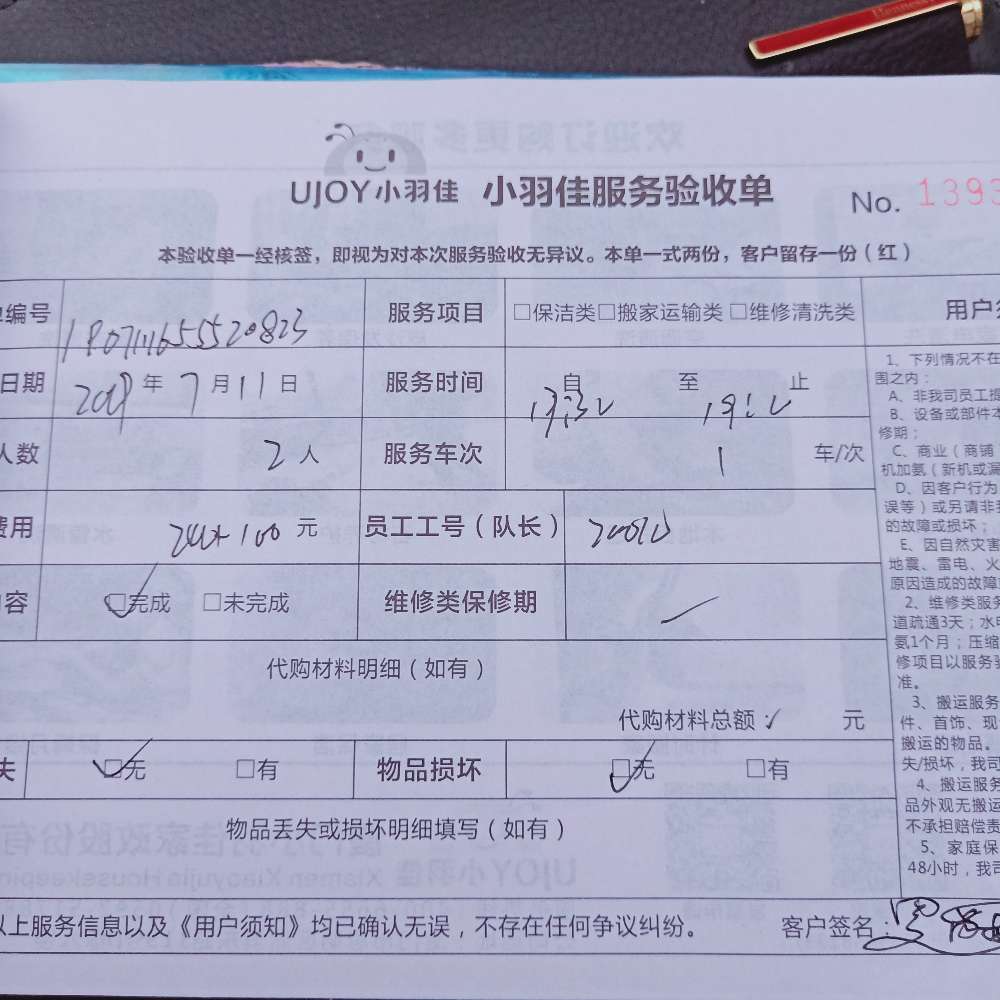 Hennessy
UJOY小羽佳 小羽佳服务验收单 No. 1393
本验收单一经核签，即视为对本次服务验收无异议。本单一式两份，客户留存一份（红）
编号 1807111655520823 服务项目 □保洁类□搬家运输类 □维修清洗类 用户
日期 年 7 月 11 日 服务时间 自 至 止
人数 2 人 服务车次 1 车/次
费用 元 员工工号（队长）
容 □完成 □未完成 维修类保修期
代购材料明细（如有）
代购材料总额： 元
失 □无 □有 物品损坏 □无 □有
物品丢失或损坏明细填写（如有）
以上服务信息以及《用户须知》均已确认无误，不存在任何争议纠纷。 客户签名：
1、下列情况不在
围之内：
A、非我司员工
B、设备或部件本
修期；
C、商业（商铺
机加氨（新机或漏
D、因客户行为
误等）或另请非
的故障或损坏；
E、因自然灾害
地震、雷电、火
原因造成的故障
2、维修类服务
道疏通3天；水电
氨1个月；压缩
修项目以服务验
准。
3、搬运服务
件、首饰、现
搬运的物品。
失/损坏，我司
4、搬运服务
品外观无搬运
不承担赔偿责
5、家庭保
48小时，我司